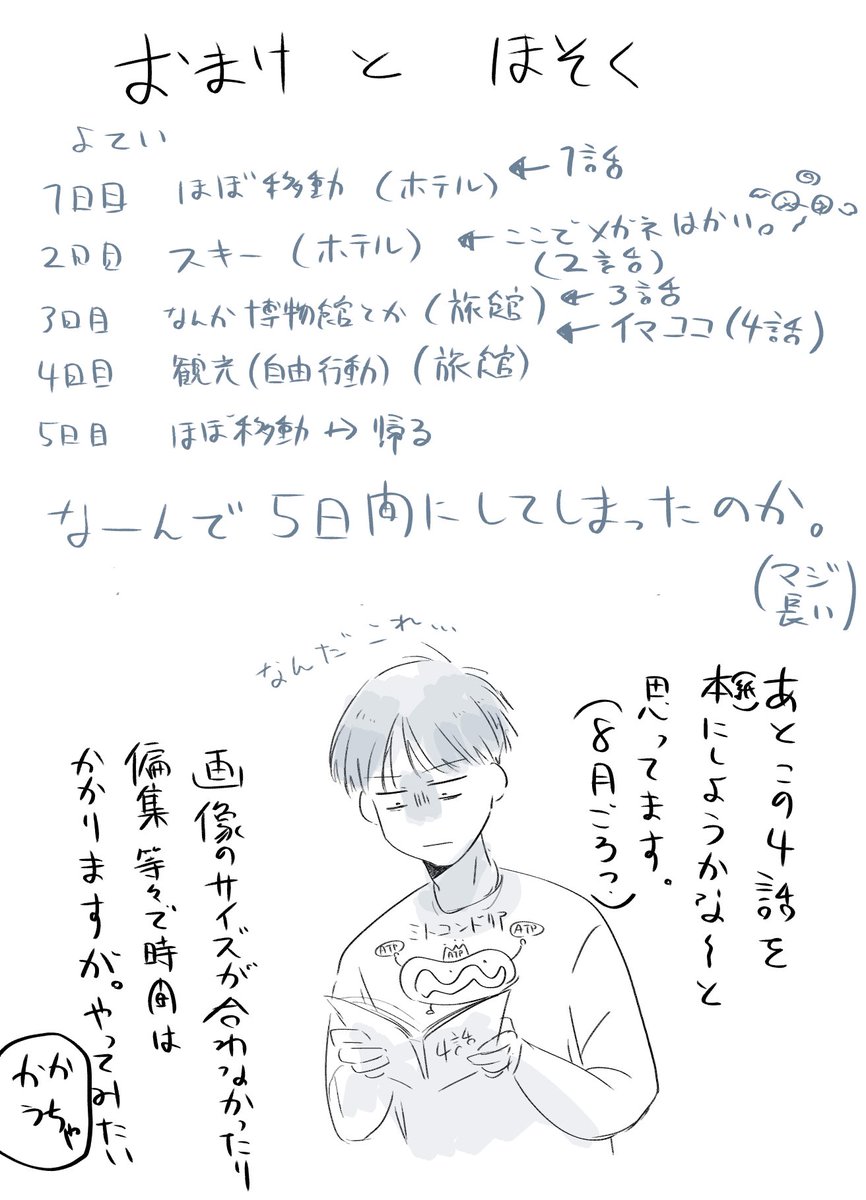 おまけ と ほそく
よてい
1日目 ほぼ移動 (ホテル) ← 1話
2日目 スキー (ホテル) ← ここでメガネはかい。
(2話)
3日目 なんか博物館とか (旅館) ← 3話
← イマココ (4話)
4日目 観光 (自由行動) (旅館)
5日目 ほぼ移動 → 帰る
なーんで5日間にしてしまったのか。
(マジ
長い)
なんだこれ…
あとこの4話を
本(紙)にしようかな〜と
思ってます。
(8月ごろっ)
ミトコンドリア
ATP
ATP
ATP
4話
画像のサイズが合わなかったり
偏集 等々で時間は
かかりますが。やってみたい
かか
うちゃ